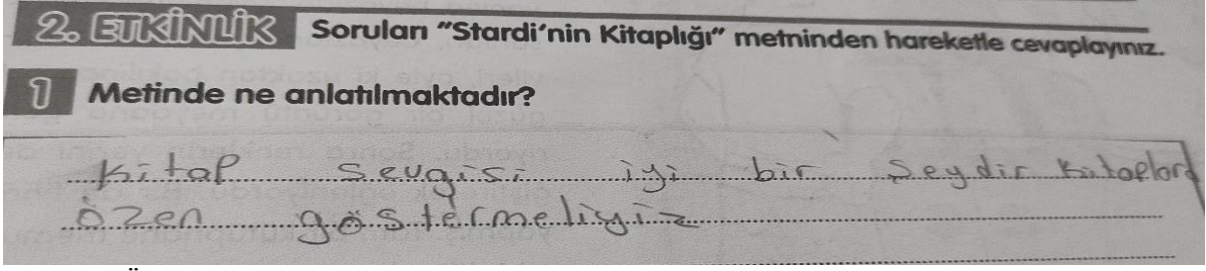 2. ETKİNLİK Soruları "Stardi'nin Kitaplığı" metninden hareketle cevaplayınız.
1 Metinde ne anlatılmaktadır?
kitap sevgisi iyi bir şeydir kitaplara
özen göstermeliyiz